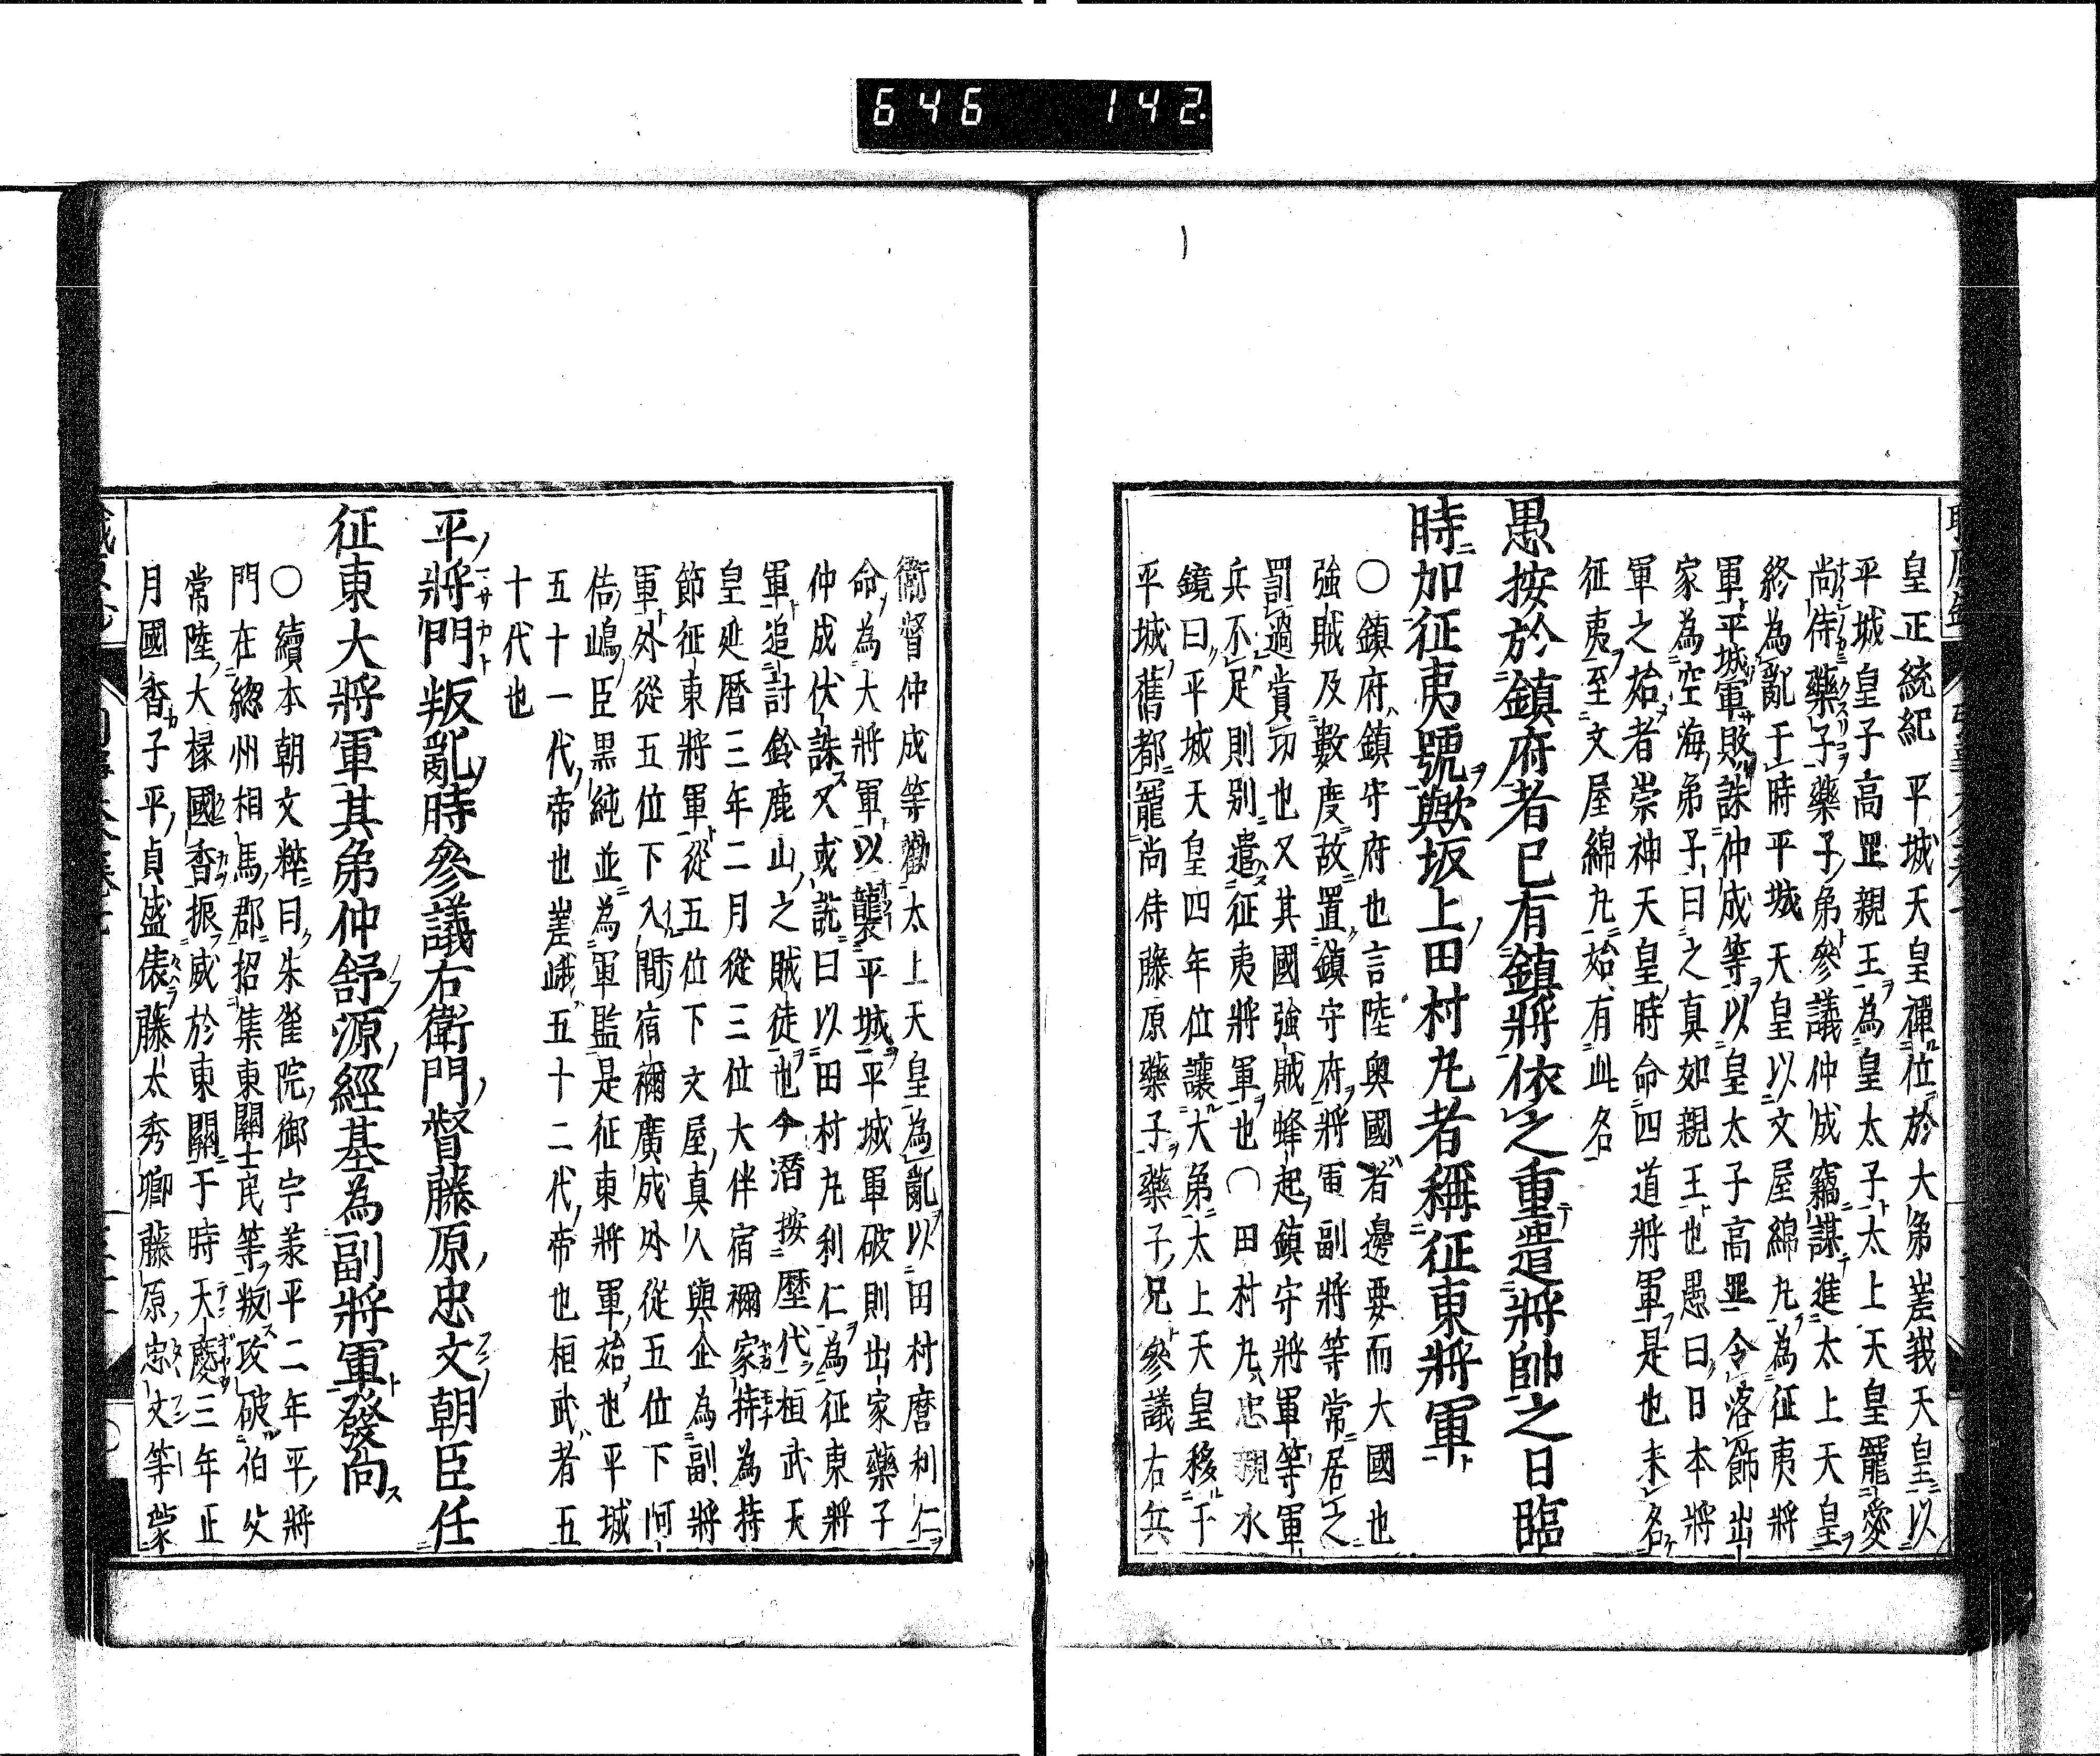 646 142
皇正統紀 平城天皇禪位於大弟嵯峨天皇以
平城皇子高罡親王為皇太子太上天皇寵愛
尚侍藥子藥子弟參議仲成竊謀進太上天皇
終為亂于時平城天皇以文屋綿九為征夷將
軍平城軍敗誅仲成等以皇太子高罡令落飾出
家為空海弟子曰之真如親王也愚曰日本將
軍之始者崇神天皇時命四道將軍是也未名
征夷至文屋綿九始有此名
愚按於鎮府者已有鎮將依之重遣將帥之日臨
時加征夷號歟坂上田村九者稱征東將軍
〇鎮府鎮守府也言陸奧國者邊要而大國也
強賊及數度故置鎮守府將軍副將等常居之
罰過賞功也又其國強賊蜂起鎮守將軍等軍
兵不足則別遣征夷將軍也〇田村九忠親水
鏡曰平城天皇四年位讓大弟太上天皇移于
平城舊都寵尚侍藤原藥子藥子兄參議右兵
衛督仲成等勸太上天皇為亂以田村麿利仁
命為大將軍以襲平城平城軍破則出家藥子
仲成伏誅又或說曰以田村九利仁為征東將
軍追討鈴鹿山之賊徒也今潛按歷代桓武天
皇延暦三年二月從三位大伴宿禰家持為持
節征東將軍從五位下文屋真人與企為副將
軍外從五位下入間宿禰廣成外從五位下阿
倍嶋臣黒純並為軍監是征東將軍始也平城
五十一代帝也嵯峨五十二代帝也桓武者五
十代也
平將門叛亂時參議右衛門督藤原忠文朝臣任
征東大將軍其弟仲舒源經基為副將軍發向
〇續本朝文粹曰朱雀院御宇羕平二年平將
門在總州相馬郡招集東關士民等叛攻破伯父
常陸大椽國香振威於東關于時天慶三年正
月國香子平貞盛俵藤太秀鄉藤原忠文等蒙